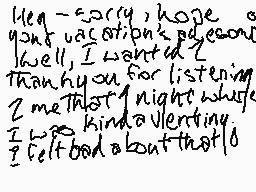 Hey - sorry, hope
your vacation's awesome
well, I wanted 2
thank you for listening
2 me that 1 night while
I was kinda venting.
I felt bad about that lo